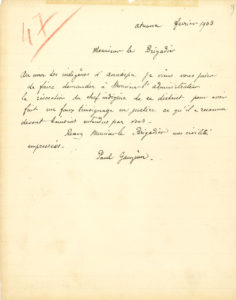 47
février 1903
Monsieur le Brigadier
Au nom des indigènes d' je viens vous prier
de faire demander à Monsieur l'Administrateur
la révocation du chef indigène de ce district pour avoir
fait un faux témoignage en justice ce qu'il a reconnu
devant témoins entendus par vous.
Monsieur le Brigadier mes civilités
empressées.
Paul